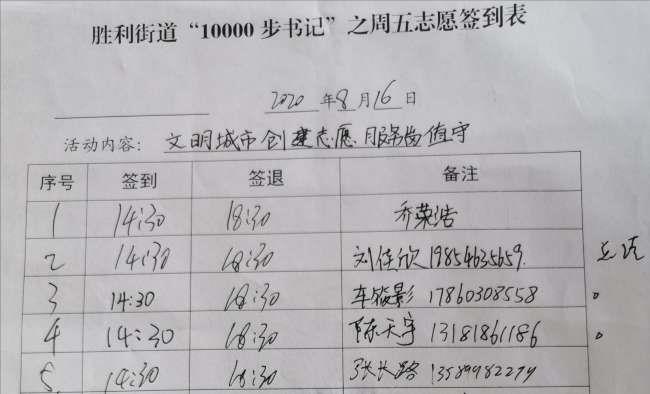 胜利街道“10000步书记”之周五志愿签到表
2020年8月16日
活动内容：文明城市创建志愿服务岗值守
序号 签到 签退 备注
1 14:30 18:30 乔荣浩
2 14:30 18:30 刘佳欣 19854635659
3 14:30 18:30 车筱影 17860308558
4 14:30 18:30 陈天宇 13181861186
5 14:30 18:30 张长路 13589982279